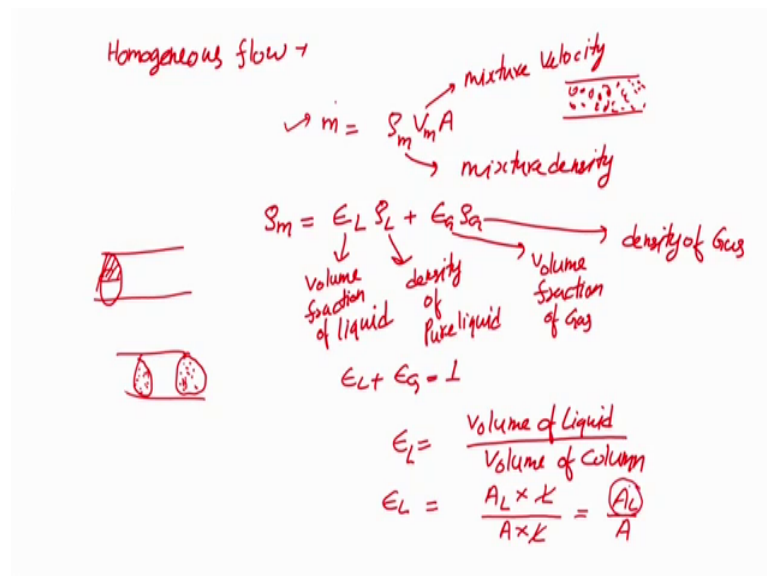 Homogeneous flow →
mixture velocity
ṁ = ρm Vm A
mixture density
ρm = ϵL ρL + ϵG ρG
density of Gas
volume fraction of liquid
density of Pure liquid
volume fraction of Gas
ϵL + ϵG = 1
ϵL = Volume of Liquid / Volume of Column
ϵL = AL × L / A × L = AL / A